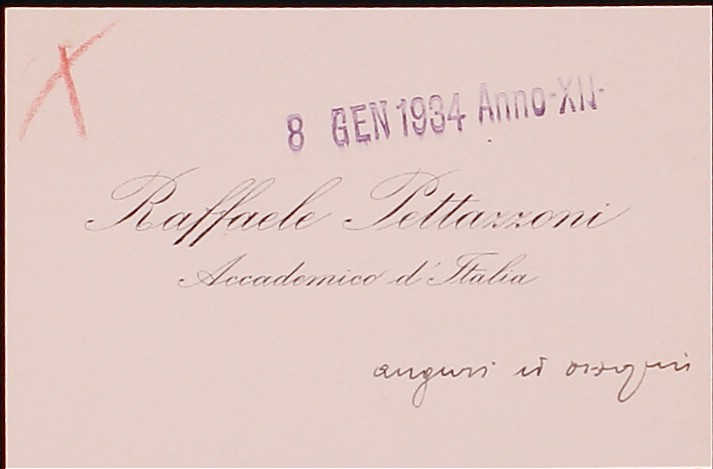 8 GEN 1934 Anno XII
Raffaele Pettazzoni
Accademico d'Italia
auguri ed ossequi